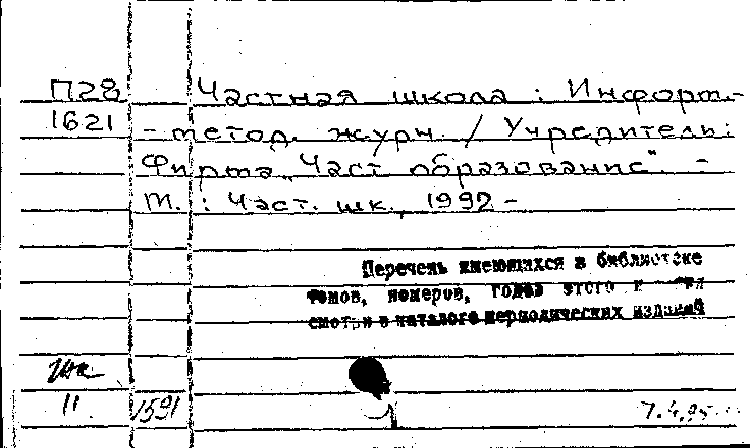 П28 Частная школа : Информ.-
1621 -метод. журн. / Учредитель:
Фирма „Част образование". -
М. : Част. шк., 1992 -
Перечень имеющихся в библиотеке
томов, номеров, годов этого
смотри в каталоге периодических изданий
11 1591 7.4.95